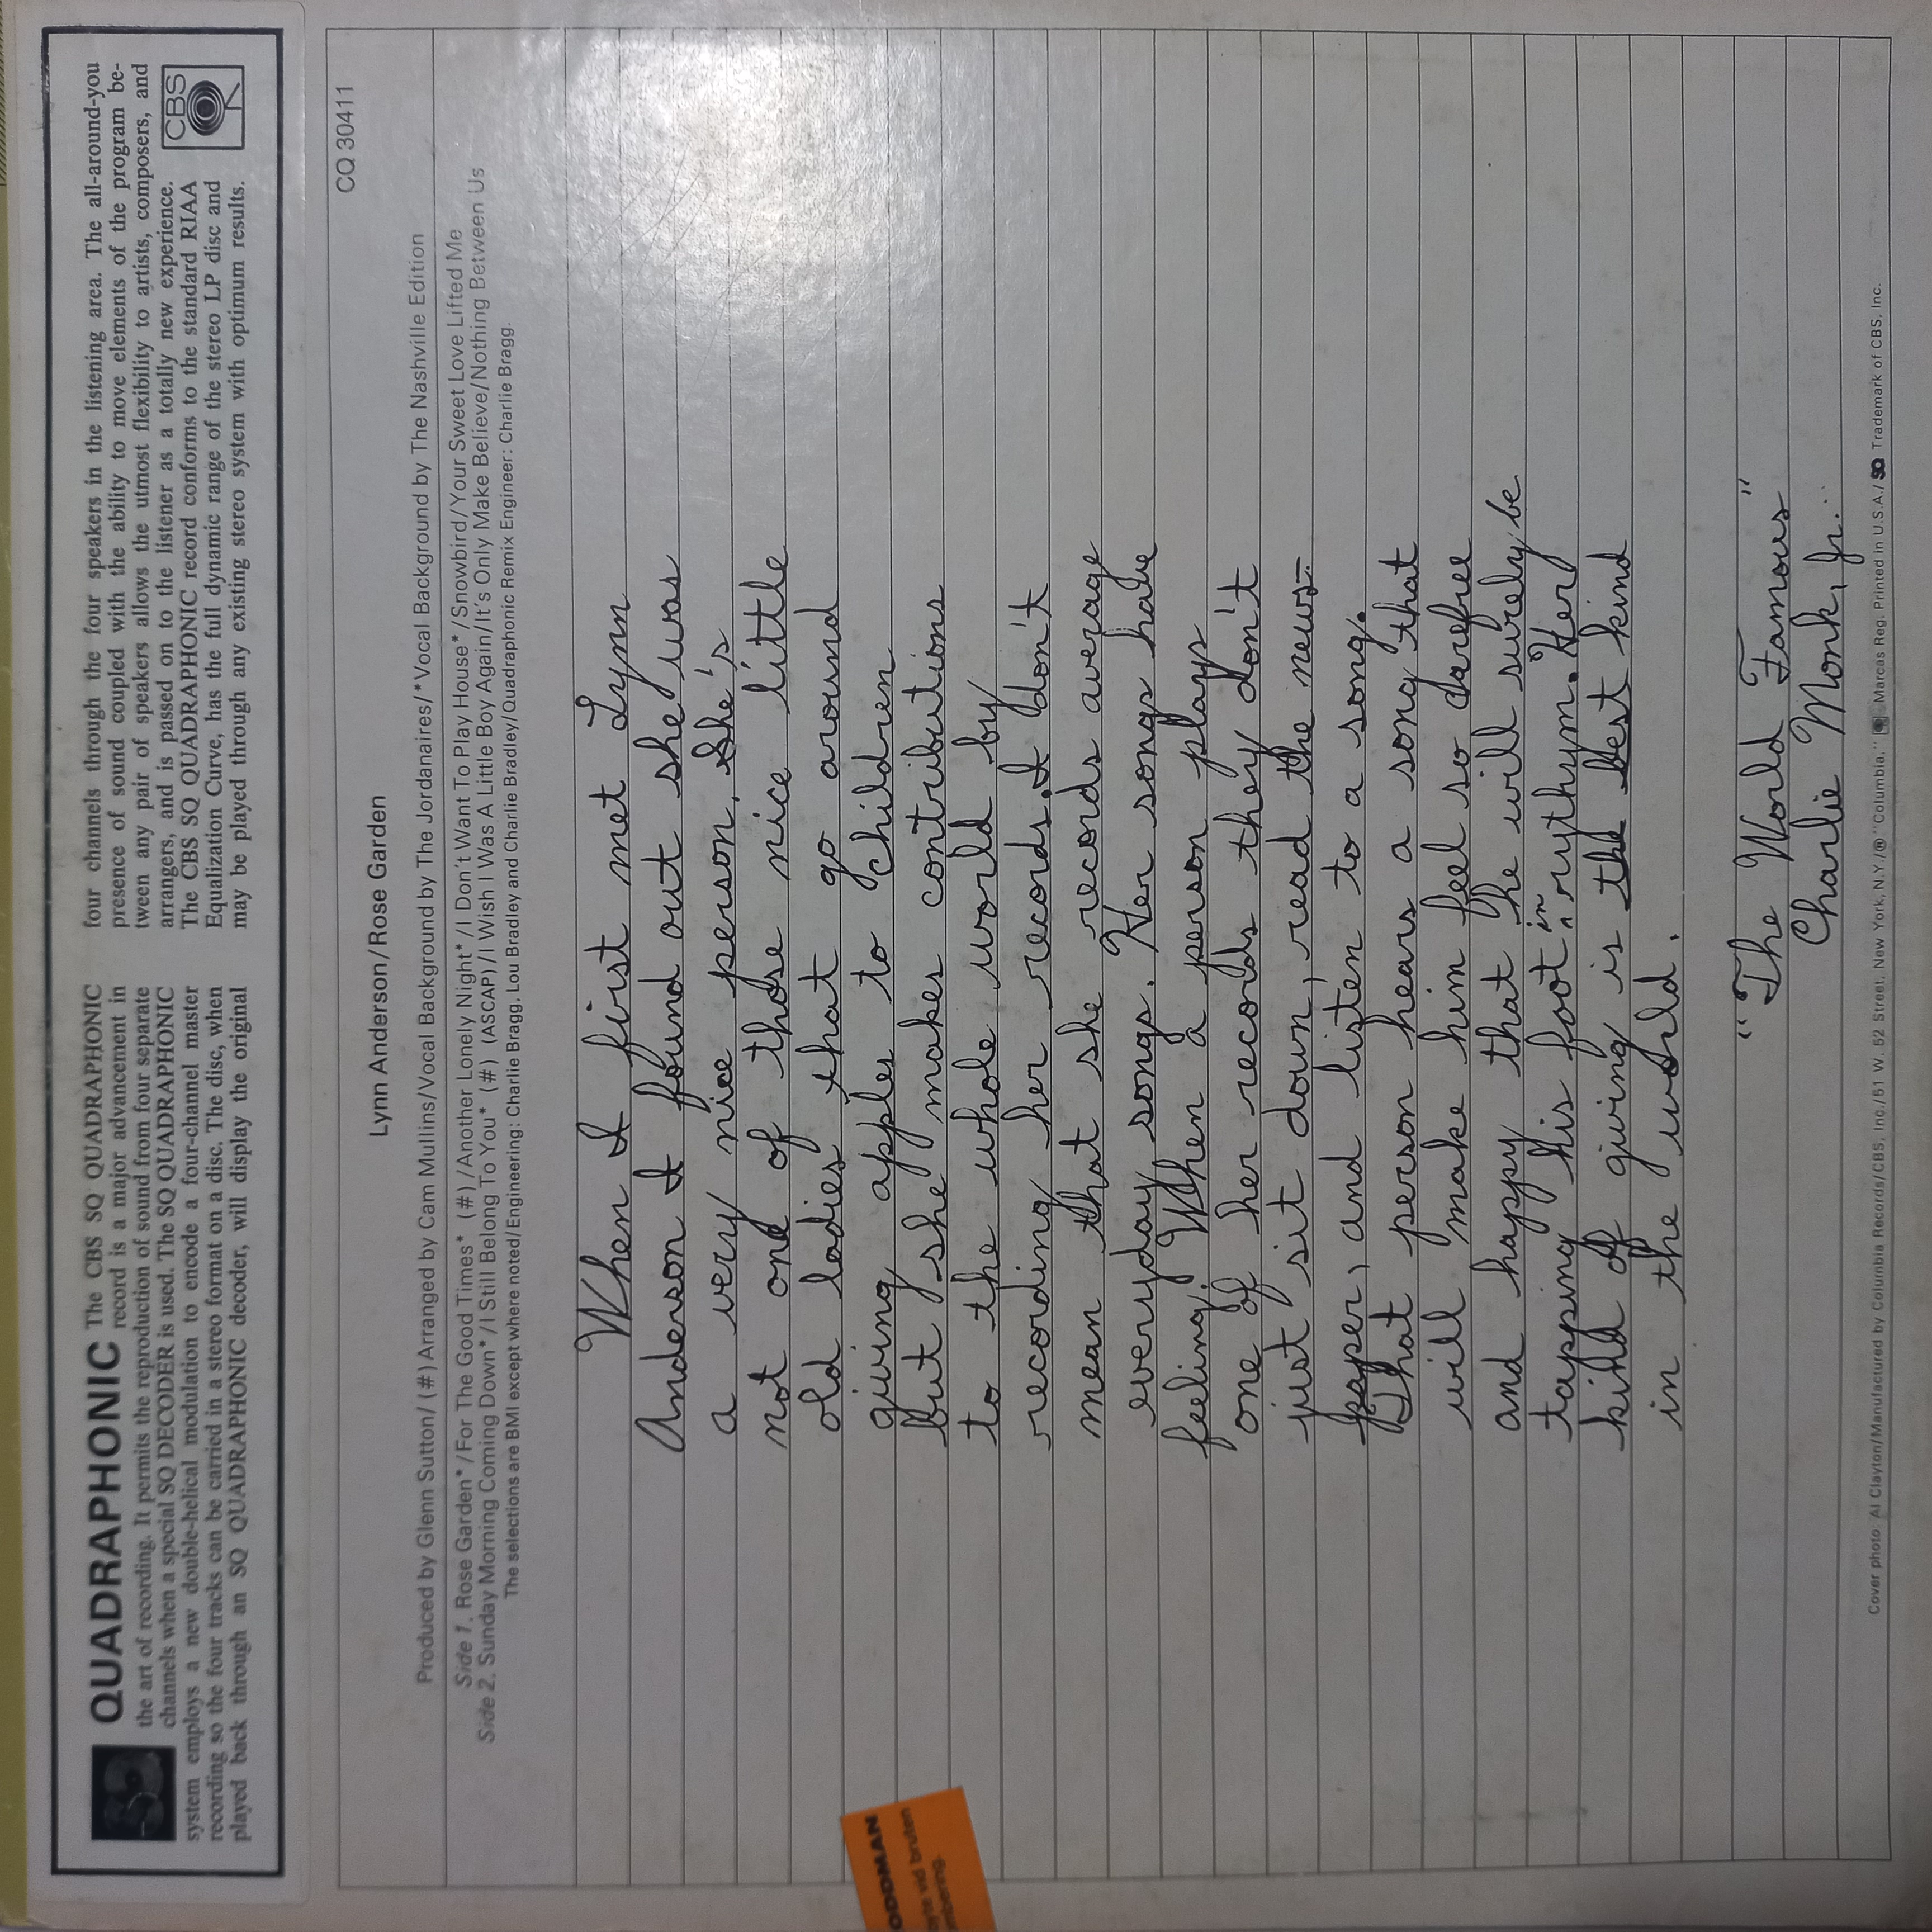 QUADRAPHONIC The CBS SQ QUADRAPHONIC
record is a major advancement in
the art of recording. It permits the reproduction of sound from four separate
channels when a special SQ DECODER is used. The SQ QUADRAPHONIC
system employs a new double-helical modulation to encode a four-channel master
recording so the four tracks can be carried in a stereo format on a disc. The disc, when
played back through an SQ QUADRAPHONIC decoder, will display the original
four channels through the four speakers in the listening area. The all-around-you
presence of sound coupled with the ability to move elements of the program be-
tween any pair of speakers allows the utmost flexibility to artists, composers, and
arrangers, and is passed on to the listener as a totally new experience.
The CBS SQ QUADRAPHONIC record conforms to the standard RIAA
Equalization Curve, has the full dynamic range of the stereo LP disc and
may be played through any existing stereo system with optimum results.
CBS
CQ 30411
Lynn Anderson/Rose Garden
Produced by Glenn Sutton/(#) Arranged by Cam Mullins/Vocal Background by The Jordanaires/*Vocal Background by The Nashville Edition
Side 1. Rose Garden*/For The Good Times* (#)/Another Lonely Night*/I Don't Want To Play House*/Snowbird/Your Sweet Love Lifted Me
Side 2. Sunday Morning Coming Down*/I Still Belong To You* (#) (ASCAP)/I Wish I Was A Little Boy Again/It's Only Make Believe/Nothing Between Us
The selections are BMI except where noted/Engineering: Charlie Bragg, Lou Bradley and Charlie Bradley/Quadraphonic Remix Engineer: Charlie Bragg.
When I first met Lynn
Anderson I found out she was
a very nice person. She's
not one of those nice little
old ladies that go around
giving apples to children
but she makes contributions
to the whole world by
recording her records. I don't
mean that she records average
everyday songs. Her songs have
feeling. When a person plays
one of her records they don't
just sit down, read the news-
paper, and listen to a song.
That person hears a song that
will make him feel so carefree
and happy that he will surely be
tapping his foot in rythym. Her
kind of giving is the best kind
in the world.
"The World Famous"
Charlie Monk, Jr.
Cover photo: Al Clayton/Manufactured by Columbia Records/CBS, Inc./51 W. 52 Street, New York, N.Y./® "Columbia," Marcas Reg. Printed in U.S.A./ SQ Trademark of CBS, Inc.
ODDMAN
vid bruten